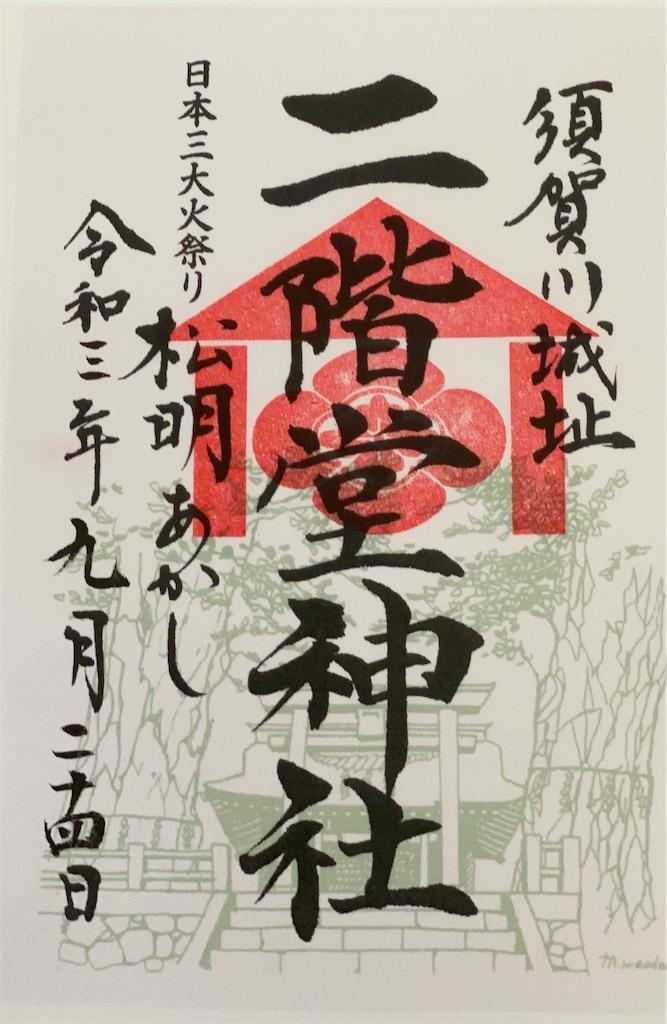 須賀川城址
二階堂神社
日本三大火祭り
松明あかし
令和三年九月二十四日